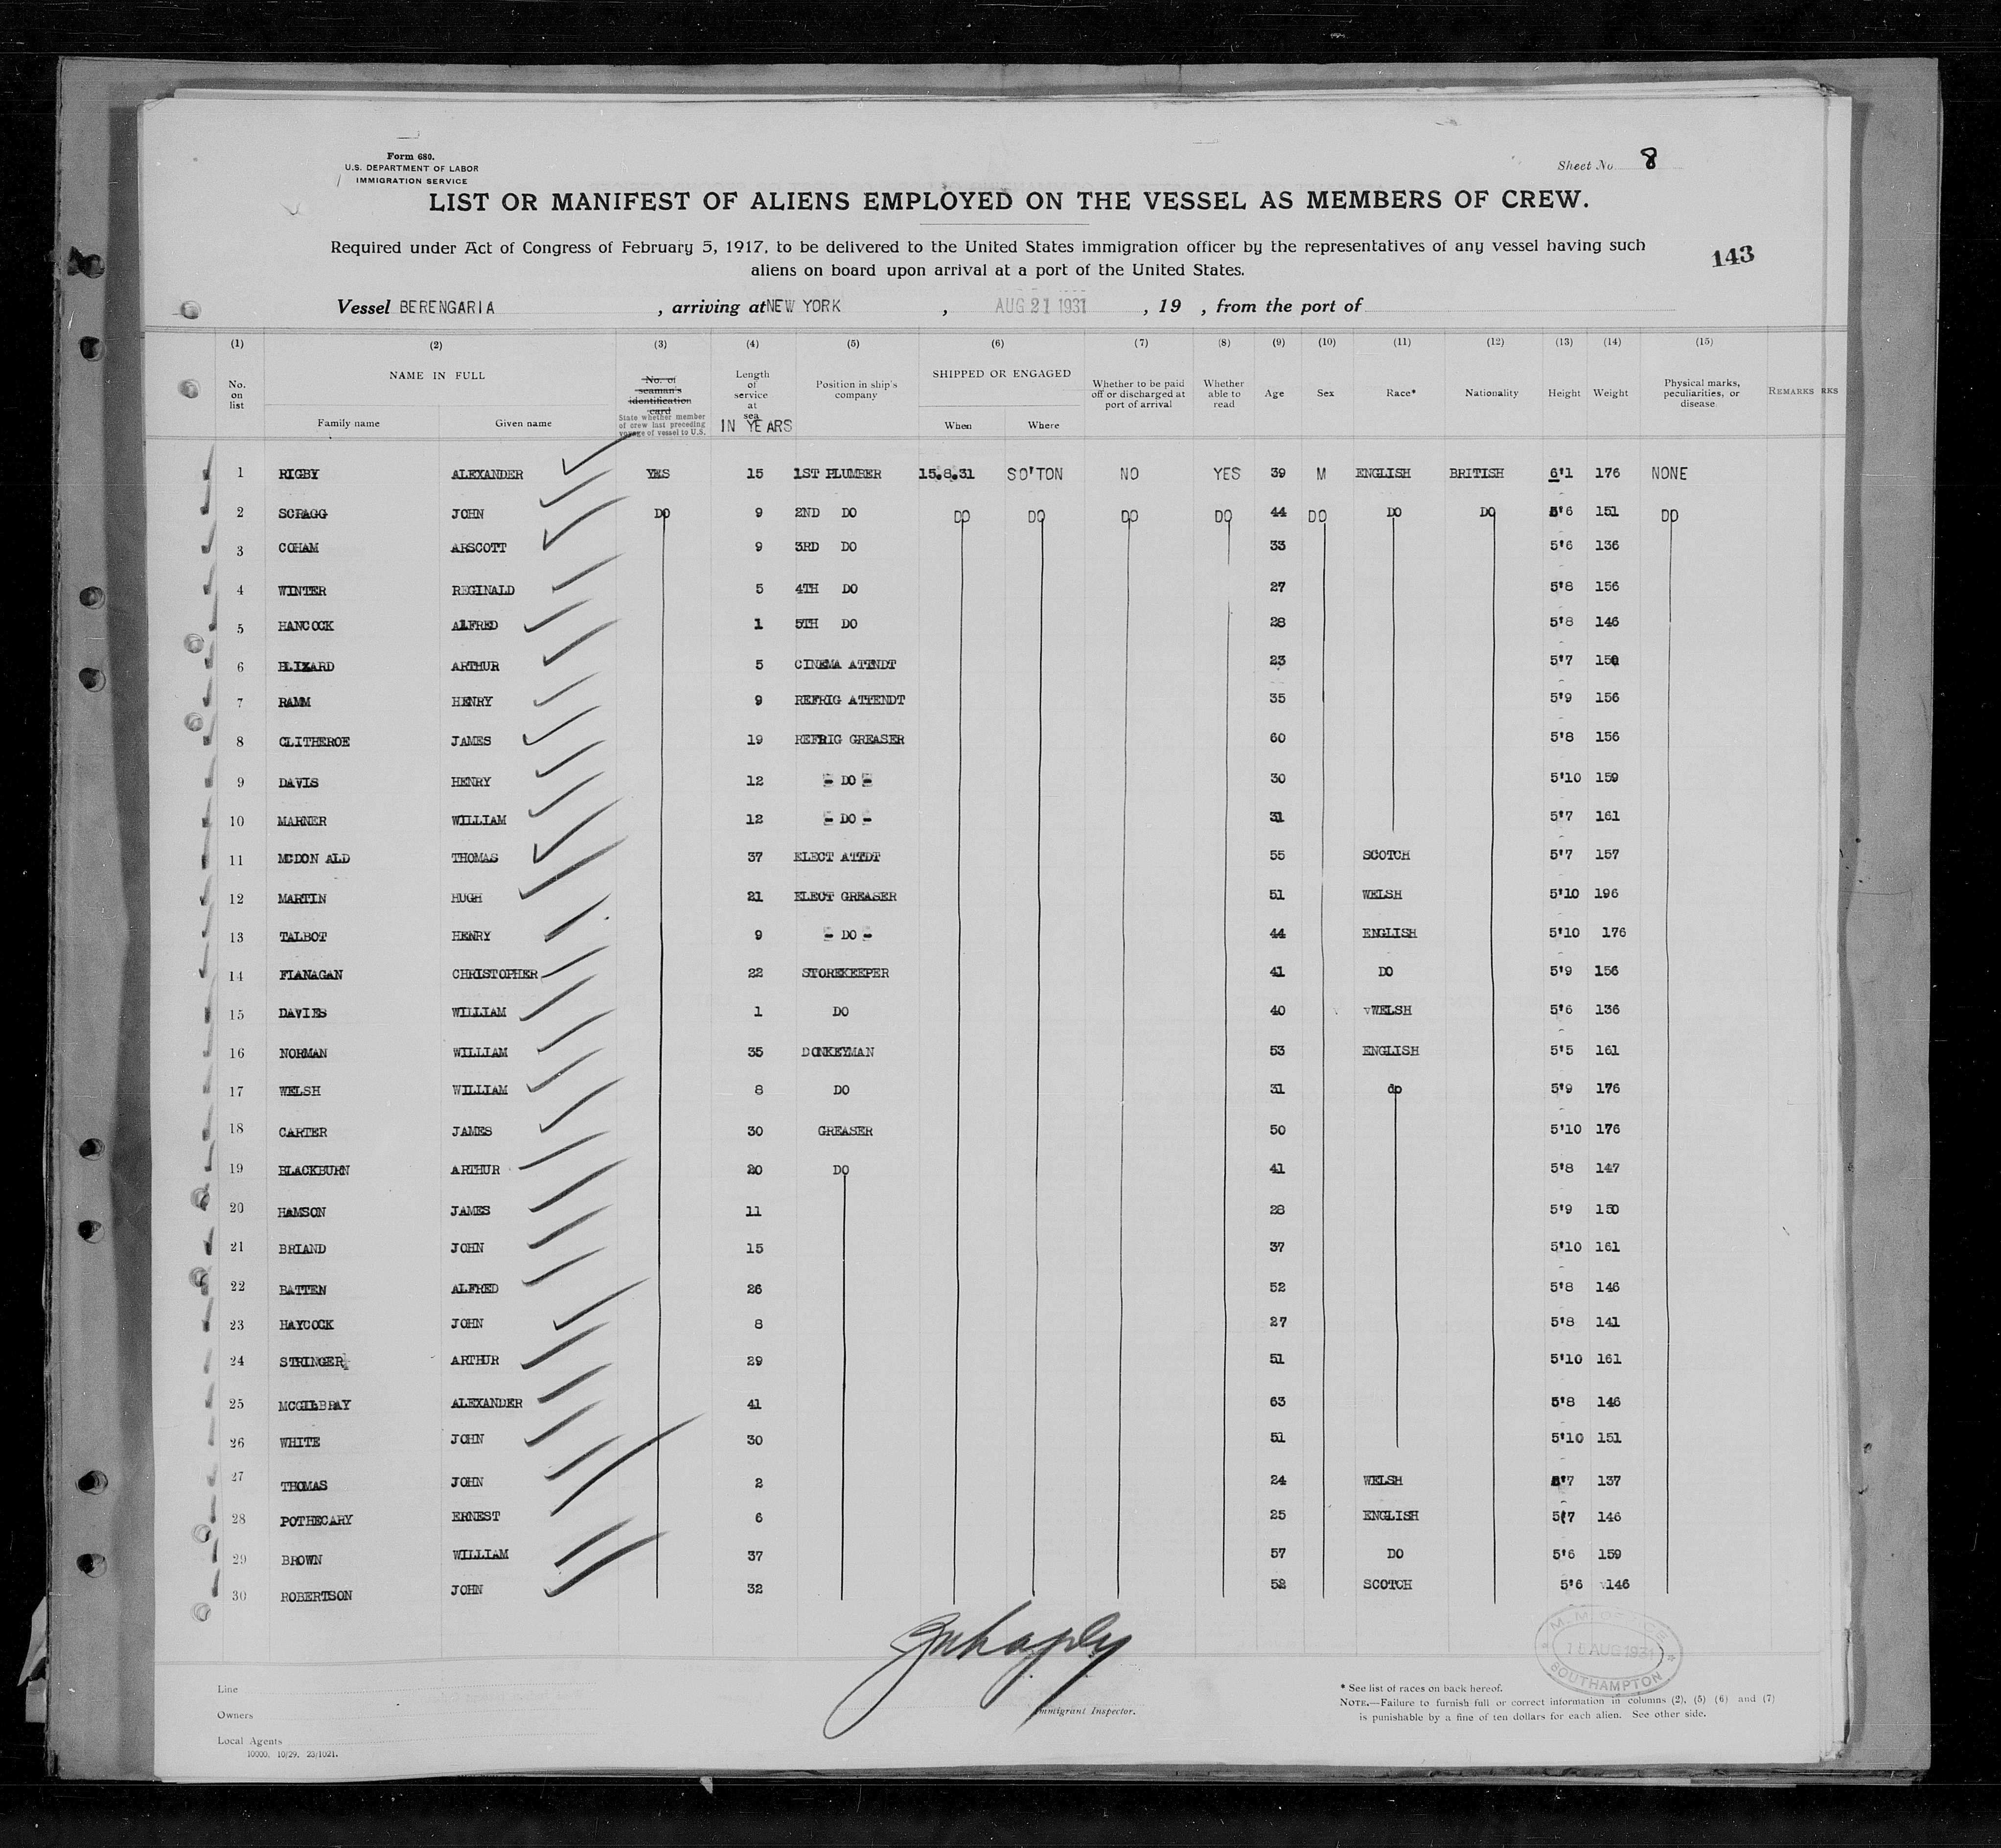 Form 680.
U.S. DEPARTMENT OF LABOR
IMMIGRATION SERVICE
Sheet No. 8
LIST OR MANIFEST OF ALIENS EMPLOYED ON THE VESSEL AS MEMBERS OF CREW.
Required under Act of Congress of February 5, 1917, to be delivered to the United States immigration officer by the representatives of any vessel having such
aliens on board upon arrival at a port of the United States.
143
Vessel BERENGARIA , arriving at NEW YORK , AUG 21 1931 , 19 , from the port of
(1) (2) (3) (4) (5) (6) (7) (8) (9) (10) (11) (12) (13) (14) (15)
No. on list NAME IN FULL Family name Given name No. of seaman's identification card State whether member of crew last preceding voyage of vessel to U.S. Length of service at sea IN YEARS Position in ship's company SHIPPED OR ENGAGED When Where Whether to be paid off or discharged at port of arrival Whether able to read Age Sex Race* Nationality Height Weight Physical marks, peculiarities, or disease. REMARKS RKS
1 RIGBY ALEXANDER YES 15 1ST PLUMBER 15.8.31 SO'TON NO YES 39 M ENGLISH BRITISH 6'1 176 NONE
2 SCRAGG JOHN DO 9 2ND DO DO DO DO DO 44 DO DO DO 5'6 151 DO
3 COHAM ARSCOTT 9 3RD DO 33 5'6 136
4 WINTER REGINALD 5 4TH DO 27 5'8 156
5 HANCOCK ALFRED 1 5TH DO 28 5'8 146
6 BLIZARD ARTHUR 5 CINEMA ATTNDT 23 5'7 150
7 RAMM HENRY 9 REFRIG ATTENDT 35 5'9 156
8 CLITHEROE JAMES 19 REFRIG GREASER 60 5'8 156
9 DAVIS HENRY 12 - DO - 30 5'10 159
10 MARNER WILLIAM 12 - DO - 31 5'7 161
11 MCDON ALD THOMAS 37 ELECT ATTDT 55 SCOTCH 5'7 157
12 MARTIN HUGH 21 ELECT GREASER 51 WELSH 5'10 196
13 TALBOT HENRY 9 - DO - 44 ENGLISH 5'10 176
14 FLANAGAN CHRISTOPHER 22 STOREKEEPER 41 DO 5'9 156
15 DAVIES WILLIAM 1 DO 40 WELSH 5'6 136
16 NORMAN WILLIAM 35 DONKEYMAN 53 ENGLISH 5'5 161
17 WELSH WILLIAM 8 DO 31 do 5'9 176
18 CARTER JAMES 30 GREASER 50 5'10 176
19 BLACKBURN ARTHUR 20 DO 41 5'8 147
20 HAMSON JAMES 11 28 5'9 150
21 BRIAND JOHN 15 37 5'10 161
22 BATTEN ALFRED 26 52 5'8 146
23 HAYCOCK JOHN 8 27 5'8 141
24 STRINGER ARTHUR 29 51 5'10 161
25 MCGILBRAY ALEXANDER 41 63 5'8 146
26 WHITE JOHN 30 51 5'10 151
27 THOMAS JOHN 2 24 WELSH 5'7 137
28 POTHECARY ERNEST 6 25 ENGLISH 5'7 146
29 BROWN WILLIAM 37 57 DO 5'6 159
30 ROBERTSON JOHN 32 52 SCOTCH 5'6 146
M.M. OFFICE
15 AUG 1931
SOUTHAMPTON
Line
Owners
Local Agents
10000. 10/29. 23/1021.
Immigrant Inspector.
* See list of races on back hereof.
NOTE.—Failure to furnish full or correct information in columns (2), (5) (6) and (7)
is punishable by a fine of ten dollars for each alien. See other side.